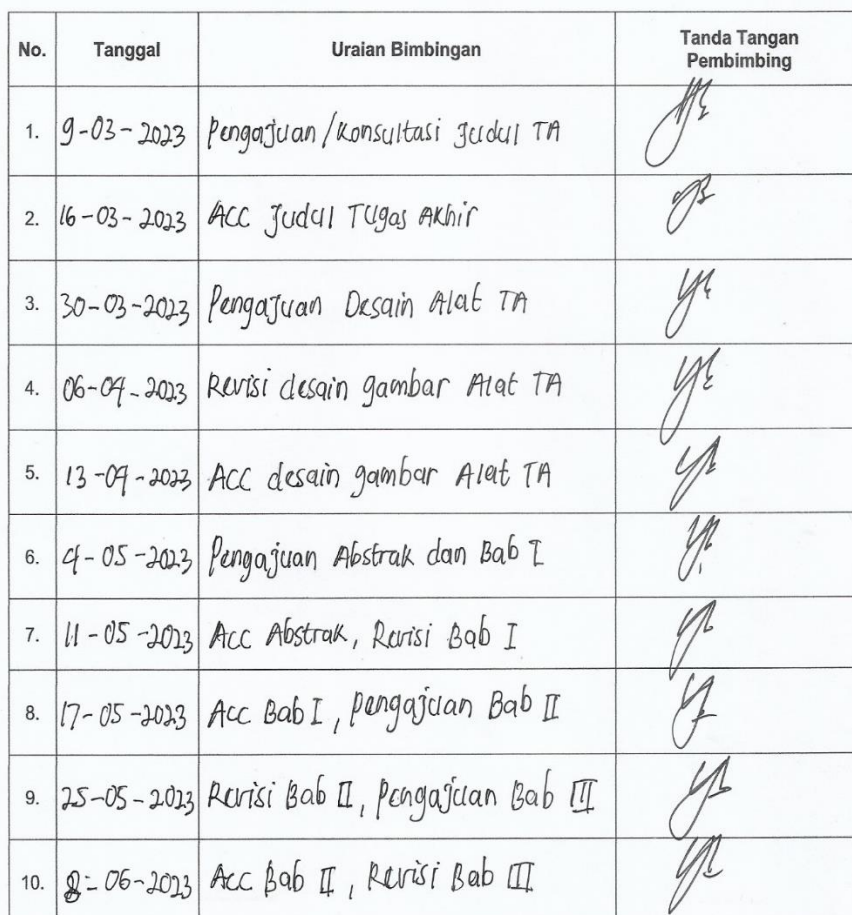 No. Tanggal Uraian Bimbingan Tanda Tangan Pembimbing
1. 9-03-2023 Pengajuan/Konsultasi Judul TA
2. 16-03-2023 ACC Judul Tugas Akhir
3. 30-03-2023 Pengajuan Desain Alat TA
4. 06-04-2023 Revisi desain gambar Alat TA
5. 13-04-2023 ACC desain gambar Alat TA
6. 4-05-2023 Pengajuan Abstrak dan Bab I
7. 11-05-2023 Acc Abstrak, Revisi Bab I
8. 17-05-2023 Acc Bab I, pengajuan Bab II
9. 25-05-2023 Revisi Bab II, Pengajuan Bab III
10. 8-06-2023 Acc Bab II, Revisi Bab III